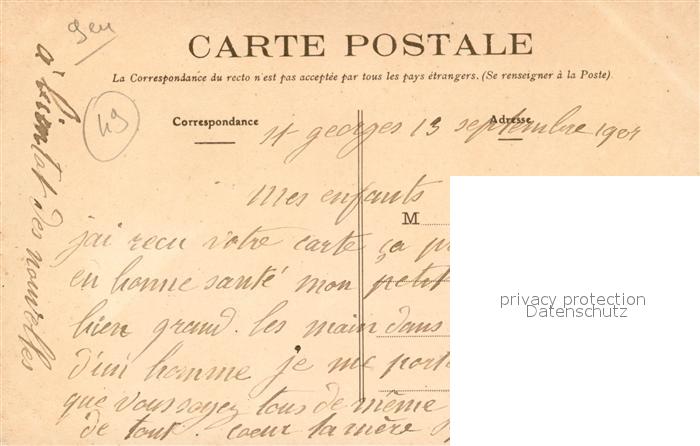 CARTE POSTALE
La Correspondance du recto n'est pas acceptée par tous les pays étrangers. (Se renseigner à la Poste).
49
Correspondance
Adresse
st georges 13 septembre
mes enfants
M
jai recu votre carte ça
en bonne santé mon petit
bien grand. les main dans
d'un homme je me porte
que vous soyez tous de même
de tout coeur ta mère
a bientot des nouvelles
privacy protection
Datenschutz